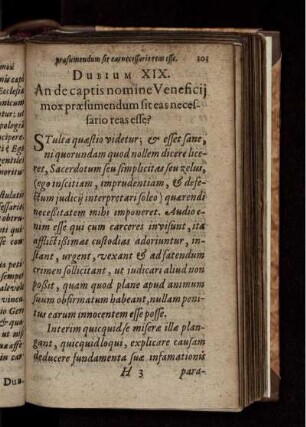 præsumendum sit eas necessariò reas esse. 101
DUBIUM XIX.
An de captis nomine Veneficij
mox præsumendum sit eas neces-
sario reas esse?
STulta quæstio videtur; & esset sane,
ni quorundam quod nollem dicere lice-
ret, Sacerdotum seu simplicitas seu zelus,
(ego inscitiam, imprudentiam, & defe-
ctum judicij interpretari soleo) quærendi
necessitatem mihi imponeret. Audio e-
nim esse qui cum carceres invisunt, ita
afflictissimas custodias adoriuntur, in-
stant, urgent, vexant & ad fatendum
crimen sollicitant, ut judicari aliud non
possit, quam quod plane apud animum
suum obfirmatum habeant, nullam peni-
tus earum innocentem esse posse.
Interim quicquid se miseræ illæ plan-
gant, quicquid loqui, explicare causam
deducere fundamenta suæ infamationis
H 3 para-
Dub.